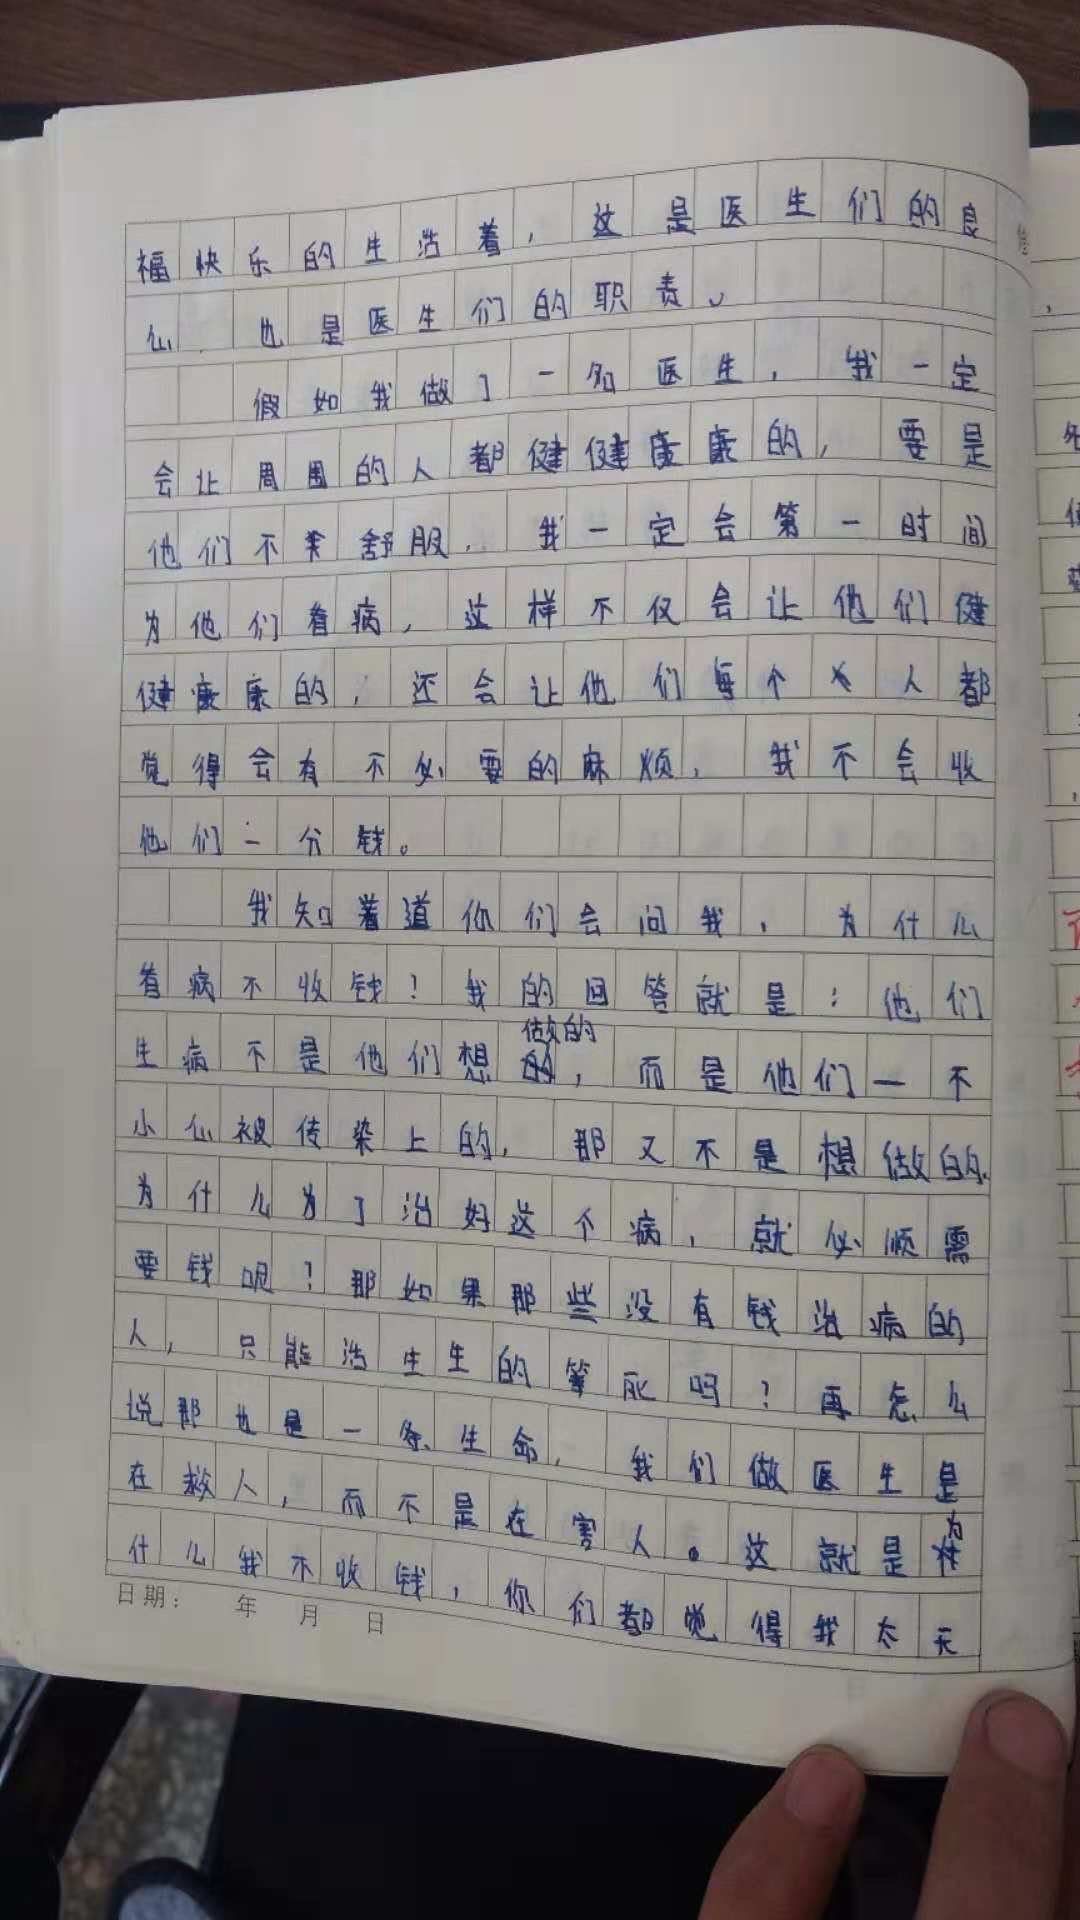 福快乐的生活着，这是医生们的良
心，也是医生们的职责。
假如我做了一名医生，我一定
会让周围的人都健健康康的，要是
他们不舒服，我一定会第一时间
为他们看病，这样不仅会让他们健
健康康的，还会让他们每个人都
觉得会有不必要的麻烦，我不会收
他们一分钱。
我知道你们会问我，为什么
看病不收钱？我的回答就是：他们
生病不是他们想做的，而是他们一不
小心被传染上的，那又不是想做的，
为什么为了治好这个病，就必顺需
要钱呢？那如果那些没有钱治病的
人，只能活生生的等死吗？再怎么
说那也是一条生命，我们做医生是
在救人，而不是在害人。这就是为
什么我不收钱，你们都觉得我太天
日期： 年 月 日